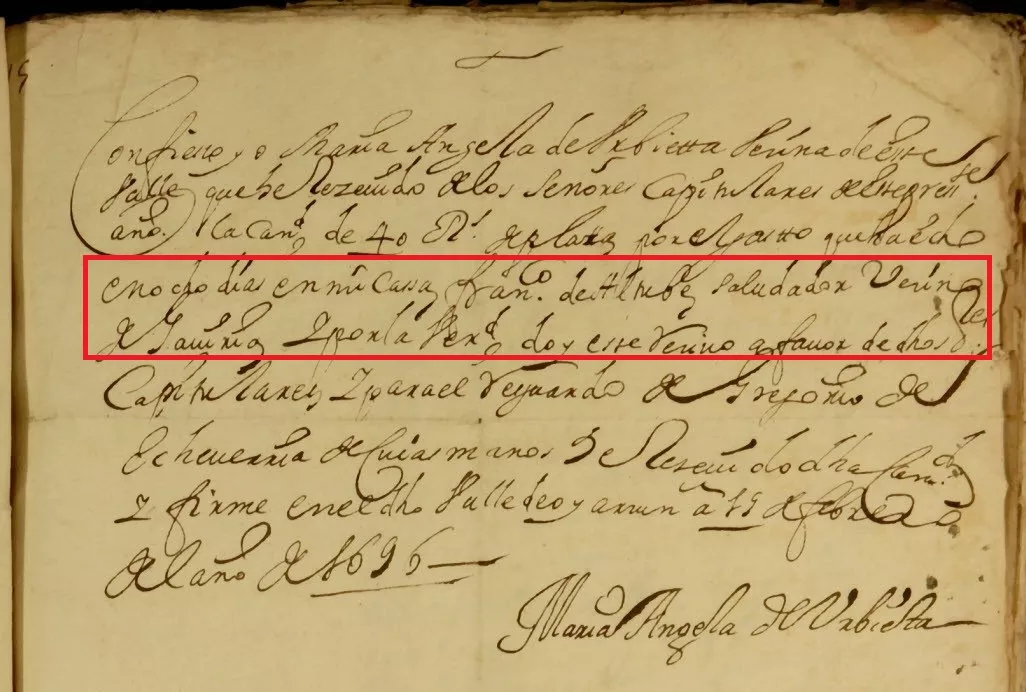 Confieso yo Maria Angella de Urbietta Vezina de este
Valle que he Rezeuido de los Señores Capitulares de este pressᵗᵉ
año. la canᵈ de 40 Rˢ de plata por el gasto que ha echo
en ocho dias en mi Cassa franᶜᵒ de Altube saludador Vezinᵒ
de Gauiria Y por la Verᵈ doy este Reciuo a fauor de dhos Sʳᵉˢ
Capitulares Y para el Resguardo de Gregorio de
Echeuerria de Cuias manos e Rezeuido dha Canᵈ
Y firme en el dho Valle de oyarzun a 15 de febrero
del año de 1696
Maria Angela de Urbieta